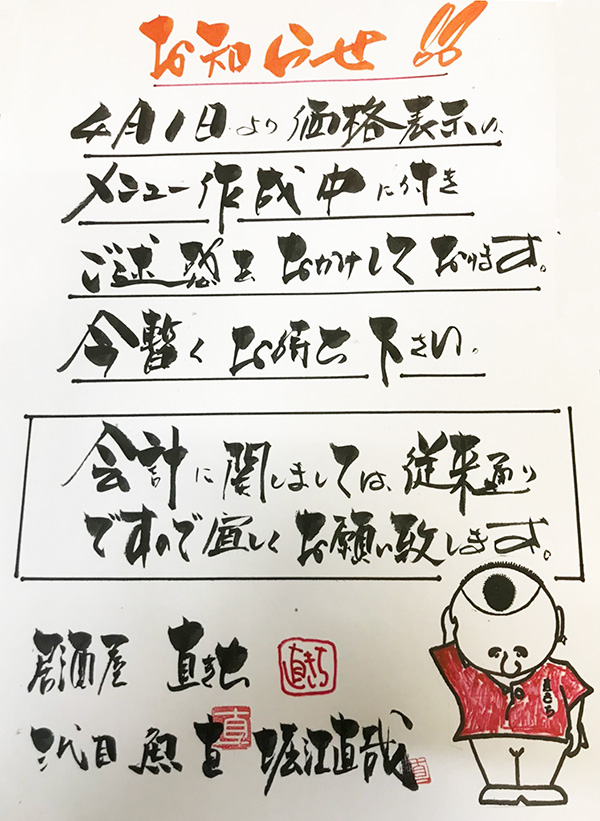 お知らせ!!
4月1日より価格表示の、
メニュー作成中に付き
ご迷惑をおかけしております。
今暫くお待ち下さい。
会計に関しましては、従来通り
ですので宜しくお願い致します。
居酒屋 直き知
直きち
二代目 魚直 堀江直哉
直
直
直きち